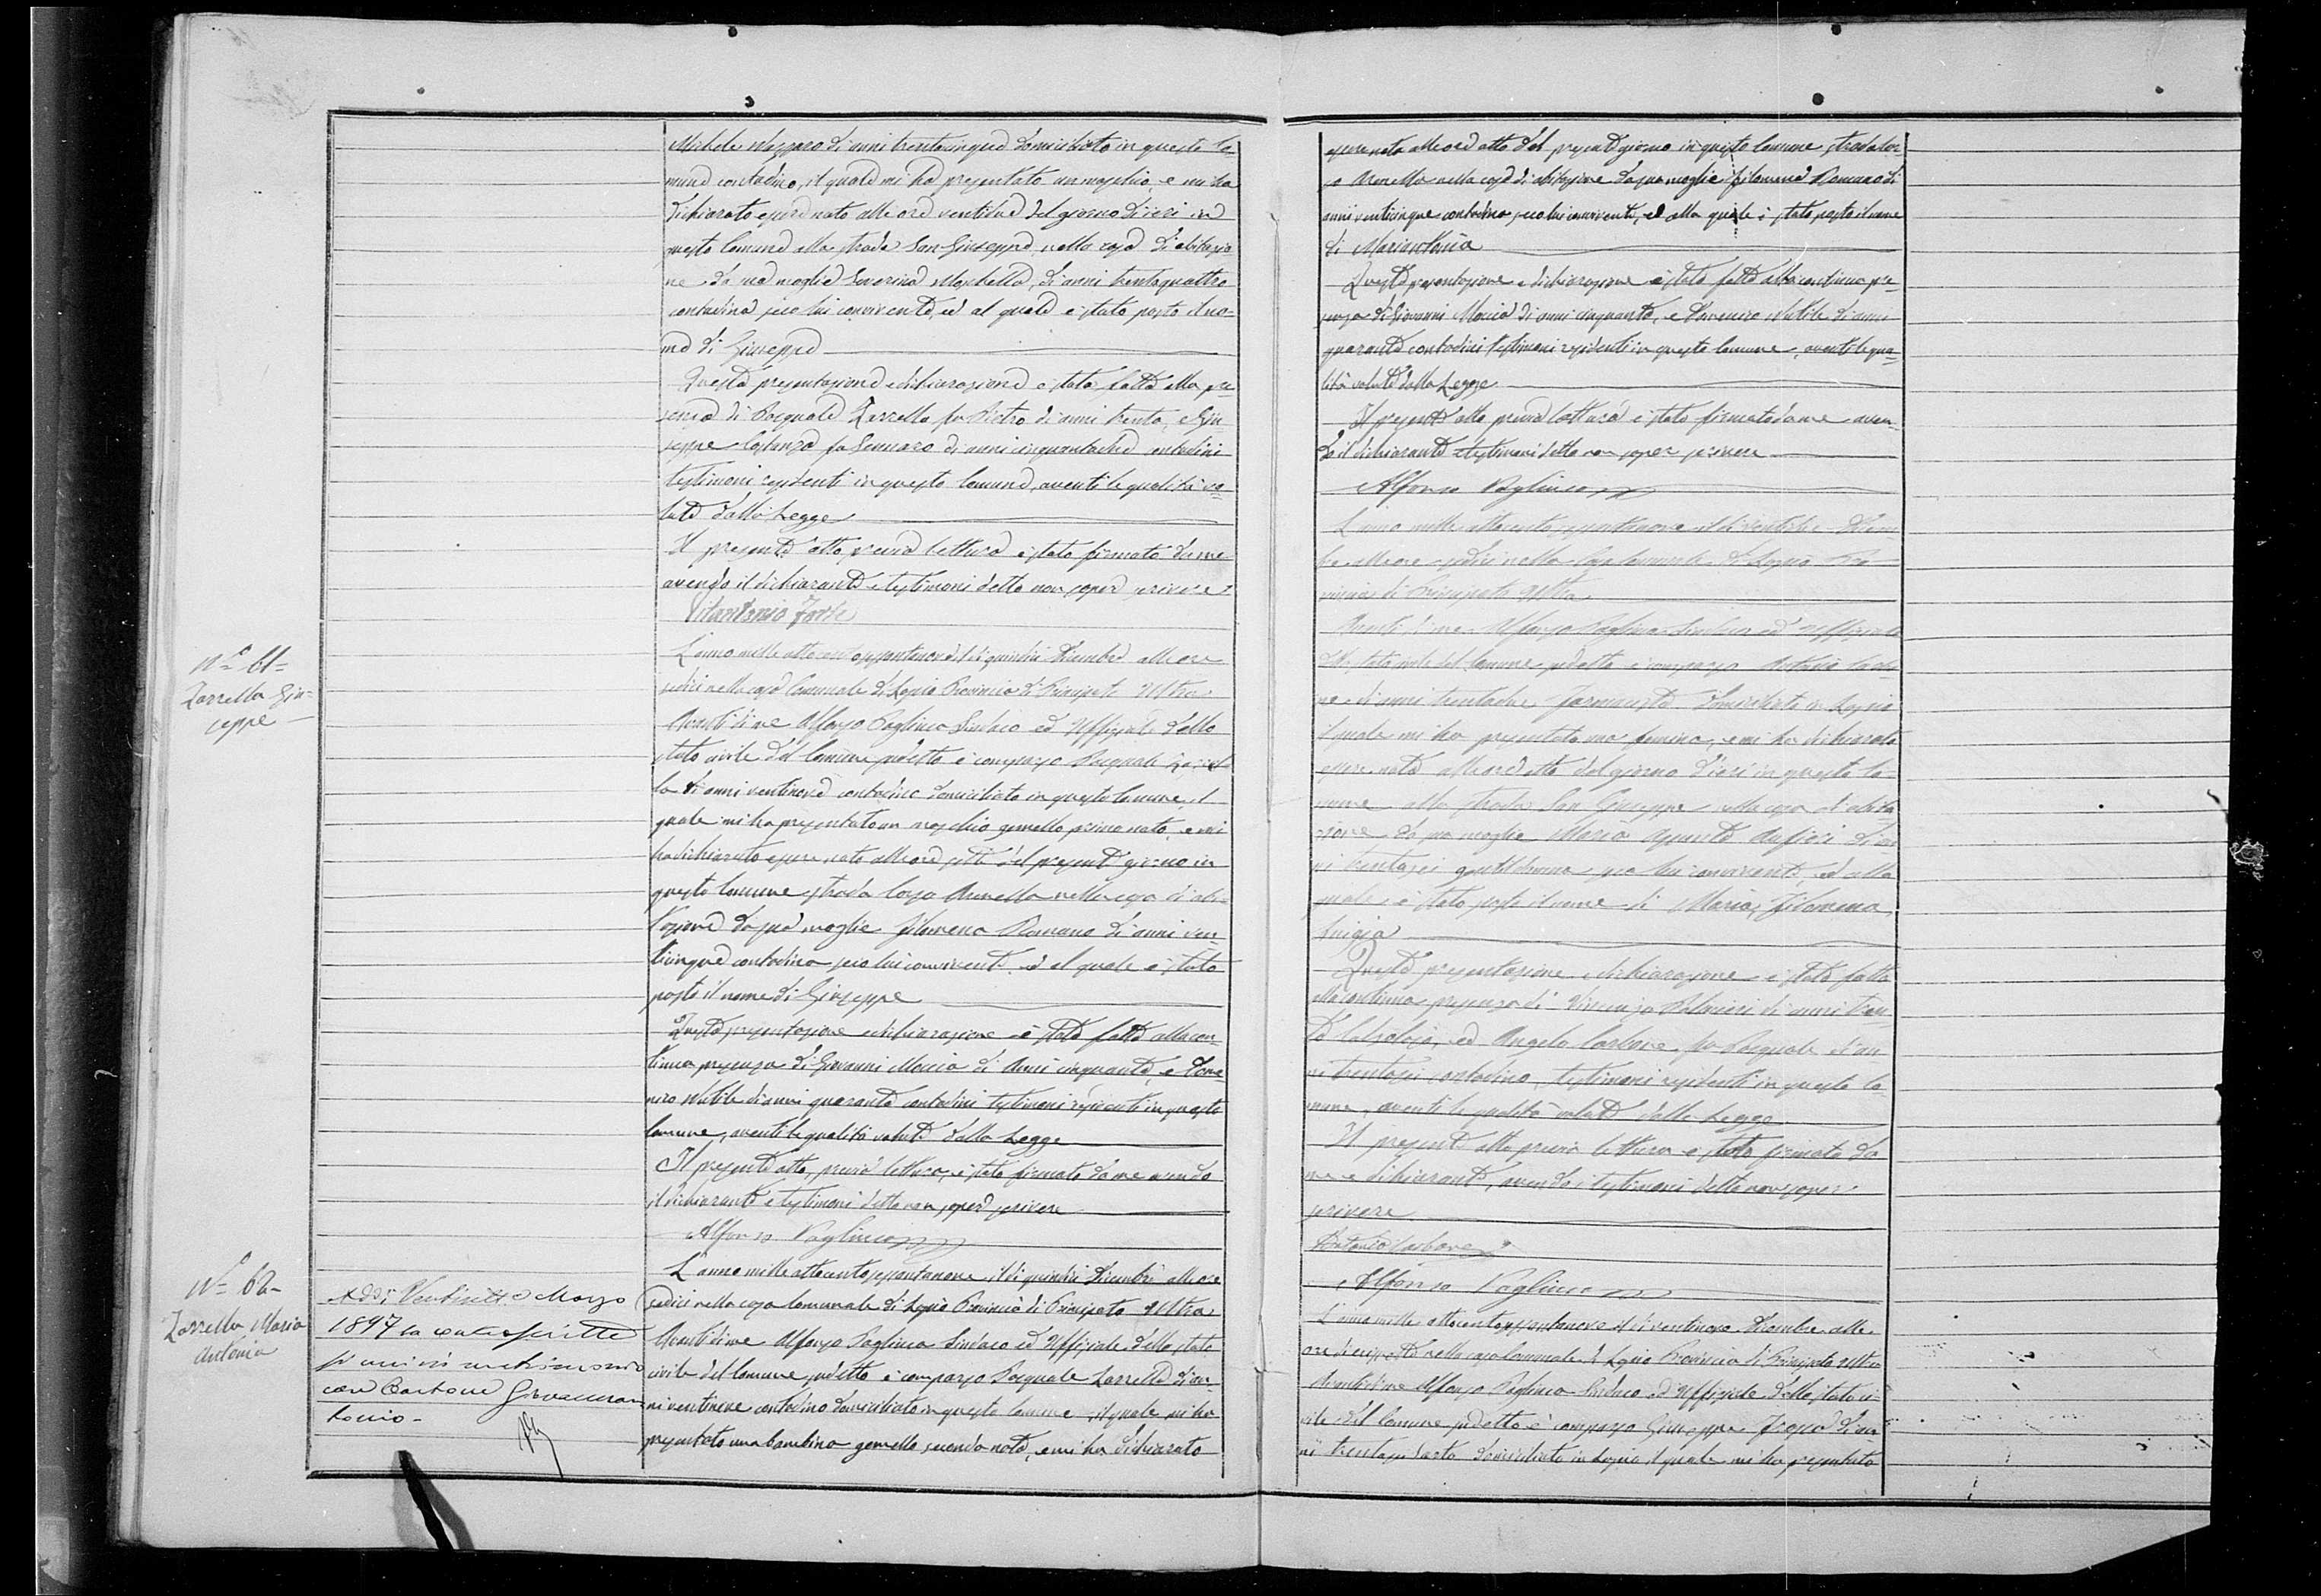 Michele Mazzaro di anni trentacinque domiciliato in questo Co-
mune contadino, il quale mi ha presentato un maschio, e mi ha
dichiarato essere nato alle ore ventidue del giorno di ieri in
questo Comune alla strada San Giuseppe, nella casa di abitazio
ne da sua moglie Saverina di anni trentaquattro
contadina seco lui convivente, ed al quale è stato posto il no-
me di Giuseppe
Questa presentazione e dichiarazione è stata fatta alla pre
senza di Pasquale Zarrella fu Pietro di anni trenta, e Giu
seppe Costanza fu Gennaro di anni contadini
testimoni residenti in questo Comune, aventi le qualità vo-
lute dalla Legge
Il presente atto previa lettura è stato firmato da me
avendo il dichiarante e testimoni detto non saper scrivere
Vitantonio Forte
N.o 61=
Zarrella Giu-
seppe
L'anno mille ottocento settantanove il dì quindici Dicembre alle ore
sedici nella casa Comunale di Lapio Provincia di Principato Ultra
Avanti di me Alfonso Pagliuca Sindaco ed Uffiziale dello
stato civile del Comune sudetto è comparso Pasquale Zarrel
la di anni ventinove contadino domiciliato in questo Comune, il
quale mi ha presentato un maschio gemello primo nato, e mi
ha dichiarato essere nato alle ore sette del presente giorno in
questo Comune strada Corso nella casa di abi-
tazione da sua moglie Filomena Romano di anni ven
ticinque contadina seco lui convivente, ed al quale è stato
posto il nome di Giuseppe
Questa presentazione e dichiarazione è stata fatta alla con-
tinua presenza di Giovanni Moccia di anni cinquanta, e
Nobile di anni quaranta contadini testimoni residenti in questo
Comune, aventi le qualità volute dalla Legge
Il presente atto, previa lettura, è stato firmato da me avendo
il dichiarante e testimoni detto non saper scrivere
Alfonso Pagliuca
N.o 62-
Zarrella Maria
Antonia
Addì Ventisette Marzo
1897 la controscritta
si unì in matrimonio
con Carbone Giovannan
tonio-
L'anno mille ottocento settantanove, il dì quindici Dicembre alle ore
sedici nella casa Comunale di Lapio Provincia di Principato Ultra
Avanti di me Alfonso Pagliuca Sindaco ed Uffiziale dello stato
civile del Comune sudetto è comparso Pasquale Zarrella di an-
ni ventinove contadino domiciliato in questo Comune, il quale mi ha
presentato una bambina gemella seconda nata, e mi ha dichiarato
essere nata alle ore otto del presente giorno in questo Comune strada Cor-
so nella casa di abitazione da sua moglie Filomena Romano di
anni venticinque contadina seco lui convivente, ed alla quale è stato posto il nome
di Mariantonia
Questa presentazione e dichiarazione è stata fatta alla continua pre-
senza di Giovanni Moccia di anni cinquanta, e Nobile di anni
quaranta contadini testimoni residenti in questo Comune, aventi le qua-
lità volute dalla Legge
Il presente atto previa lettura è stato firmato da me aven-
do il dichiarante e testimoni detto non saper scrivere
Alfonso Pagliuca
L'anno mille ottocento settantanove il dì Dicem
bre alle ore sedici nella Casa Comunale di Lapio Pro-
vincia di Principato Ultra
Avanti di me Alfonso Pagliuca Sindaco ed Uffiziale
dello stato civile del Comune sudetto è comparso Antonio Carbo
ne di anni farmacista domiciliato in Lapio
il quale mi ha presentato una femina, e mi ha dichiarato
essere nata alle ore otto del giorno d'ieri in questo Co-
mune alla strada San Giuseppe nella casa d'abita
zione da sua moglie Maria di an
ni trentasei gentildonna seco lui convivente, ed alla
quale è stato posto il nome di Maria, Filomena,
Luigia
Questa presentazione e dichiarazione è stata fatta
alla continua presenza di Vincenzo di anni tren
ta calzolajo, ed Angelo Carbone fu Pasquale d'an
ni trentasei contadino, testimoni residenti in questo Co-
mune, aventi le qualità volute dalla Legge
Il presente atto previa lettura è stato firmato da
me e dichiarante, avendo i testimoni detto non saper
scrivere
Antonio Carbone
Alfonso Pagliuca
L'anno mille ottocento settantanove il dì ventinove Dicembre alle
ore diecisette nella casa Comunale di Lapio Provincia di Principato Ultra
Avanti di me Alfonso Pagliuca Sindaco ed Uffiziale dello stato ci-
vile del Comune sudetto è comparso Giuseppe di an
ni domiciliato in Lapio il quale mi ha presentato